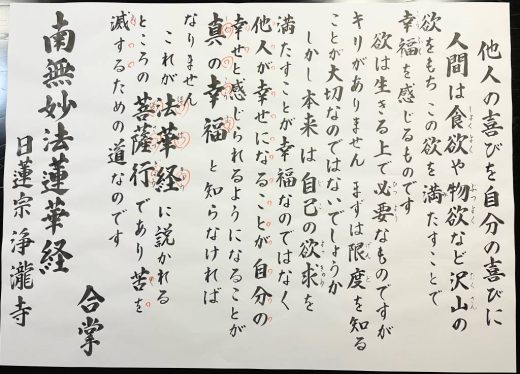 他人の喜びを自分の喜びに
人間は食欲や物欲など沢山の
欲をもち この欲を満たすことで
幸福を感じるものです
欲は生きる上で必要なものですが
キリがありません まずは限度を知る
ことが大切なのではないでしょうか
しかし本来は自己の欲求を
満たすことが幸福なのではなく
他人が幸せになることが自分の
幸せと感じられるようになることが
真の幸福と知らなければ
なりません
これが法華経に説かれる
ところの菩薩行であり苦を
滅するための道なのです
合掌
南無妙法蓮華経
日蓮宗 浄瀧寺